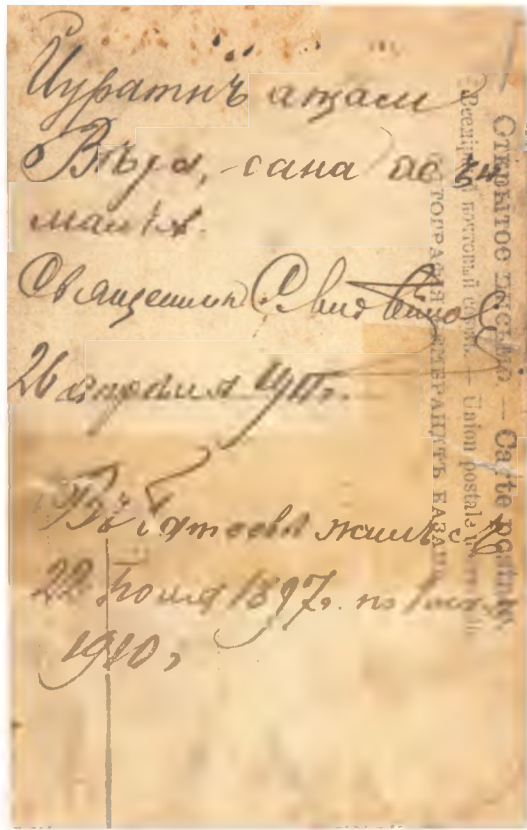 Йуратнъ аппам
Вѣра, сана асън
малъх.
Священникъ С.
26 апрѣля 1911г.
Въ жилъ съ
22 Іюля 1897г. по
1910г
Открытое письмо — Carte postale.
Всемірный почтовый союзъ. — Union postale universelle
ФОТОГРАФІЯ РЕМБРАНДТЪ КАЗАНЬ